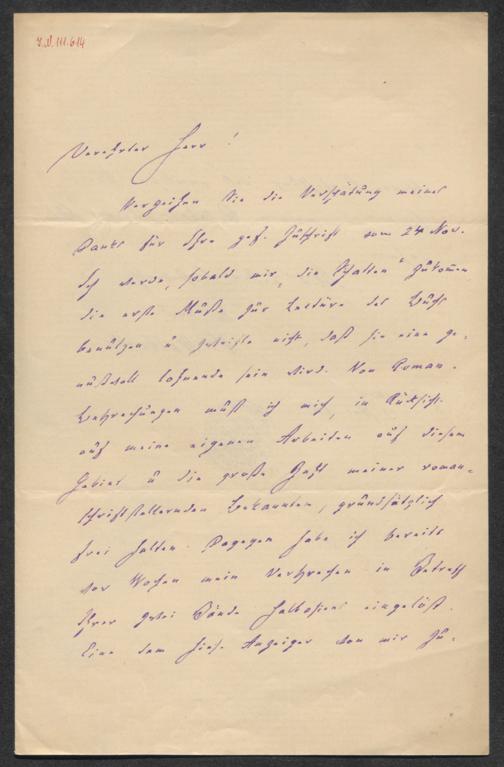 I.N. III.614
Verehrter Herr!
Verzeihen Sie die Verspätung meines
Danks für Ihre gef. Zuschrift vom 24 Nov.
Ich werde, sobald mir „die Schatten“ zukom̅en
die erste Muße zur Lectüre des Buchs
benutzen u zweifle nicht, daß sie eine ge-
nußvoll lohnende sein wird. Von Roman-
Besprechungen muß ich mich, in Rücksicht
auf meine eigenen Arbeiten auf diesem
Gebiet u die große Zahl meiner roman-
schriftstellernden Bekannten, grundsätzlich
frei halten. Dagegen habe ich bereits
vor Wochen mein Versprechen in Betreff
Ihrer zwei Bände Halbasiens eingelöst.
Eine dem hies. Anzeiger von mir zu-